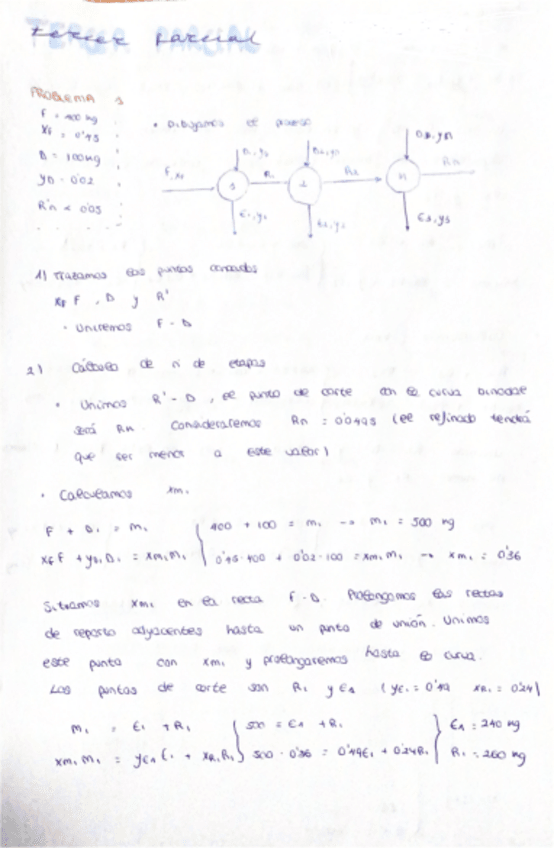 TERCER PARCIAL
tercer parcial
PROBLEMA 1
F = 400 kg
xF = 0'45
D = 100kg
yD = 0'02
R'n < 0'05
• Dibujamos el proceso
F, xF
D1, y0
R1
R2
Dn, yD
Rn
1
2
n
E1, y1
E2, y2
E3, y3
1) Trazamos los puntos conocidos
xF F , D y R'
• Uniremos F - D
2) Cálculo de nº de etapas
• Unimos R' - D , el punto de corte con la curva binodal
será Rn. Consideraremos Rn = 0'0495 (el refinado tendrá
que ser menor a este valor)
• Calculamos xm1
F + D1 = M1 400 + 100 = M1 → M1 = 500 kg
xF F + yD1 D1 = xm1 M1 0'45·400 + 0'02·100 = xm1 M1 → xm1 = 0'36
Situamos xm1 en la recta F-D. Prolongamos las rectas
de reparto adyacentes hasta un punto de unión. Unimos
este punto con xm1 y prolongaremos hasta la curva.
Los puntos de corte son R1 y E1 (yE1 = 0'49 xR1 = 0'24)
M1 = E1 + R1 500 = E1 + R1 E1 = 240 kg
xm1 M1 = yE1 E1 + xR1 R1 500 · 0'36 = 0'49E1 + 0'24R1 R1 = 260 kg